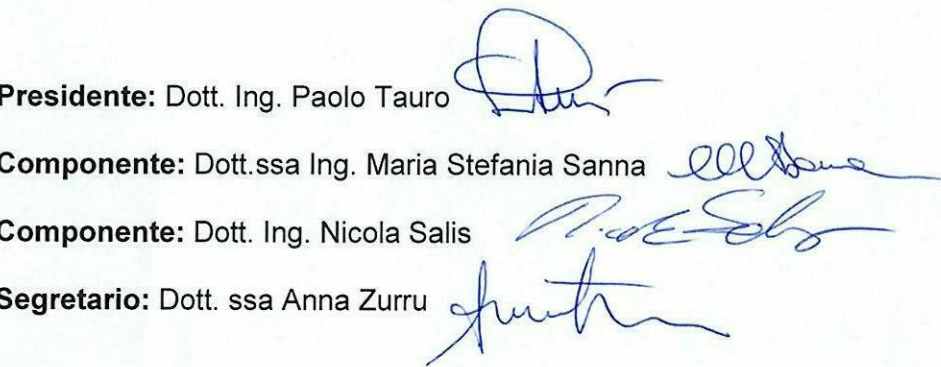 Presidente: Dott. Ing. Paolo Tauro
Componente: Dott.ssa Ing. Maria Stefania Sanna
Componente: Dott. Ing. Nicola Salis
Segretario: Dott. ssa Anna Zurru